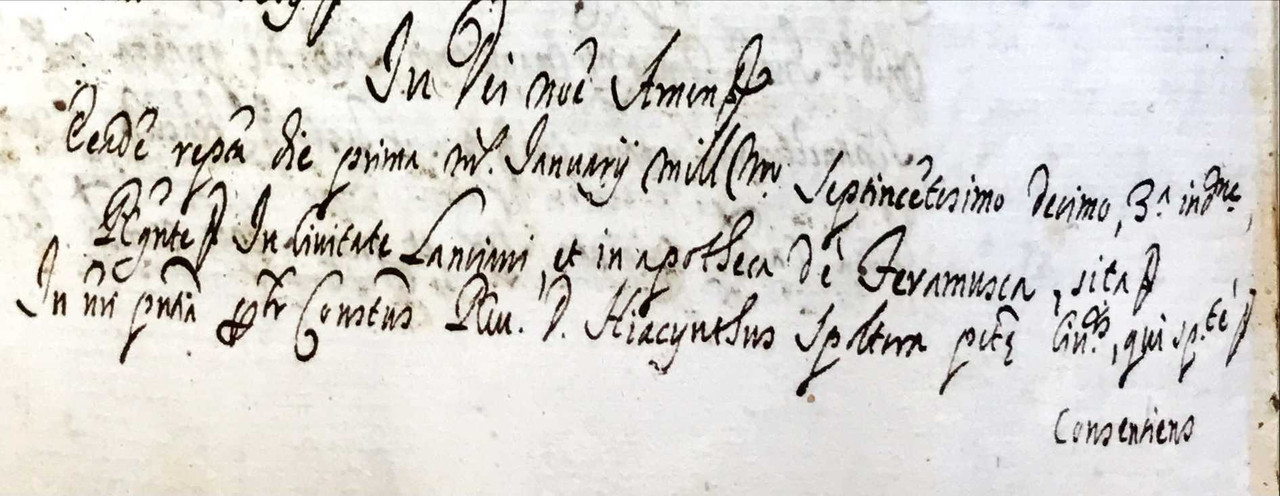 In Dei nõe Amen
Eead̃e repɑ̃ die prima m.s Januarij mill.mo septincẽtesimo decimo, 3.ª indne,
Rgnte In Civitate Lanciani, et in apotheca de Feramusca, sita
In nr̃i pñtia ptr Constus Rev. D. Hiacynthus Spoltura pct̃ę Civ.tis, qui sp.te
Consentiens